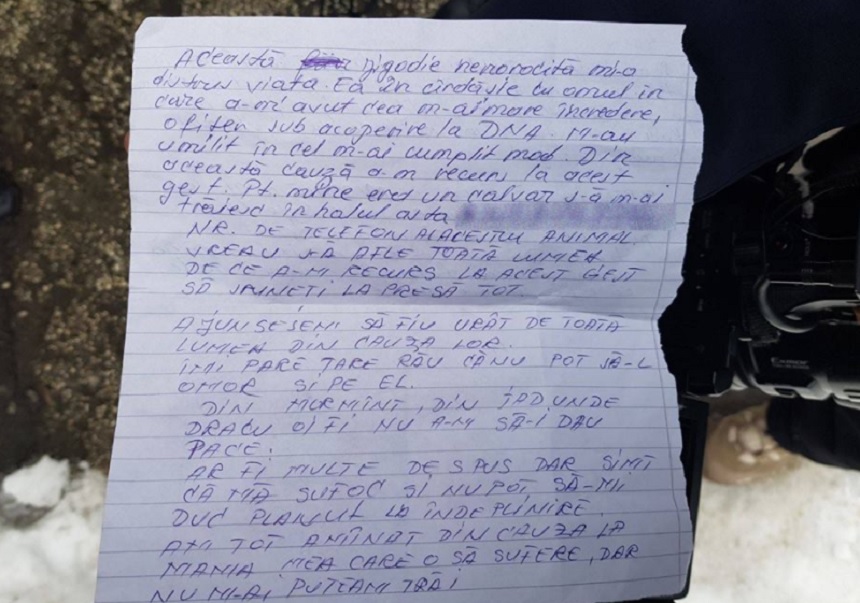 Această jigodie nenorocită mi-a
distrus viața. Ea în cîrdășie cu omul în
care a-m avut cea m-ai mare încredere,
ofițer sub acoperire la DNA. M-au
umilit în cel m-ai cumplit mod. Din
această cauză a-m recurs la acest
gest. Pt. mine era un calvar s-ă m-ai
trăiesc în halul asta
NR. DE TELEFON AL ACESTUI ANIMAL.
VREAU SĂ AFLE TOATĂ LUMEA
DE CE A-M RECURS LA ACEST GEST
SĂ SPUNEȚI LA PRESĂ TOT.
AJUNSESEM SĂ FIU URÂT DE TOATĂ
LUMEA DIN CAUZA LOR.
ÎMI PARE TARE RĂU CĂ NU POT SĂ-L
OMOR ȘI PE EL.
DIN MORMÎNT, DIN IAD UNDE
DRACU OI FI NU A-M SĂ-I DAU
PACE.
AR FI MULTE DE SPUS DAR SIMT
CĂ MĂ SUFOC SI NU POT SĂ-MI
DUC PLANUL LA ÎNDEPLINIRE.
AM TOT AMÎNAT DIN CAUZA LA
MAMA MEA CARE O SĂ SUFERE, DAR
NU M-AI PUTEAM TRĂI